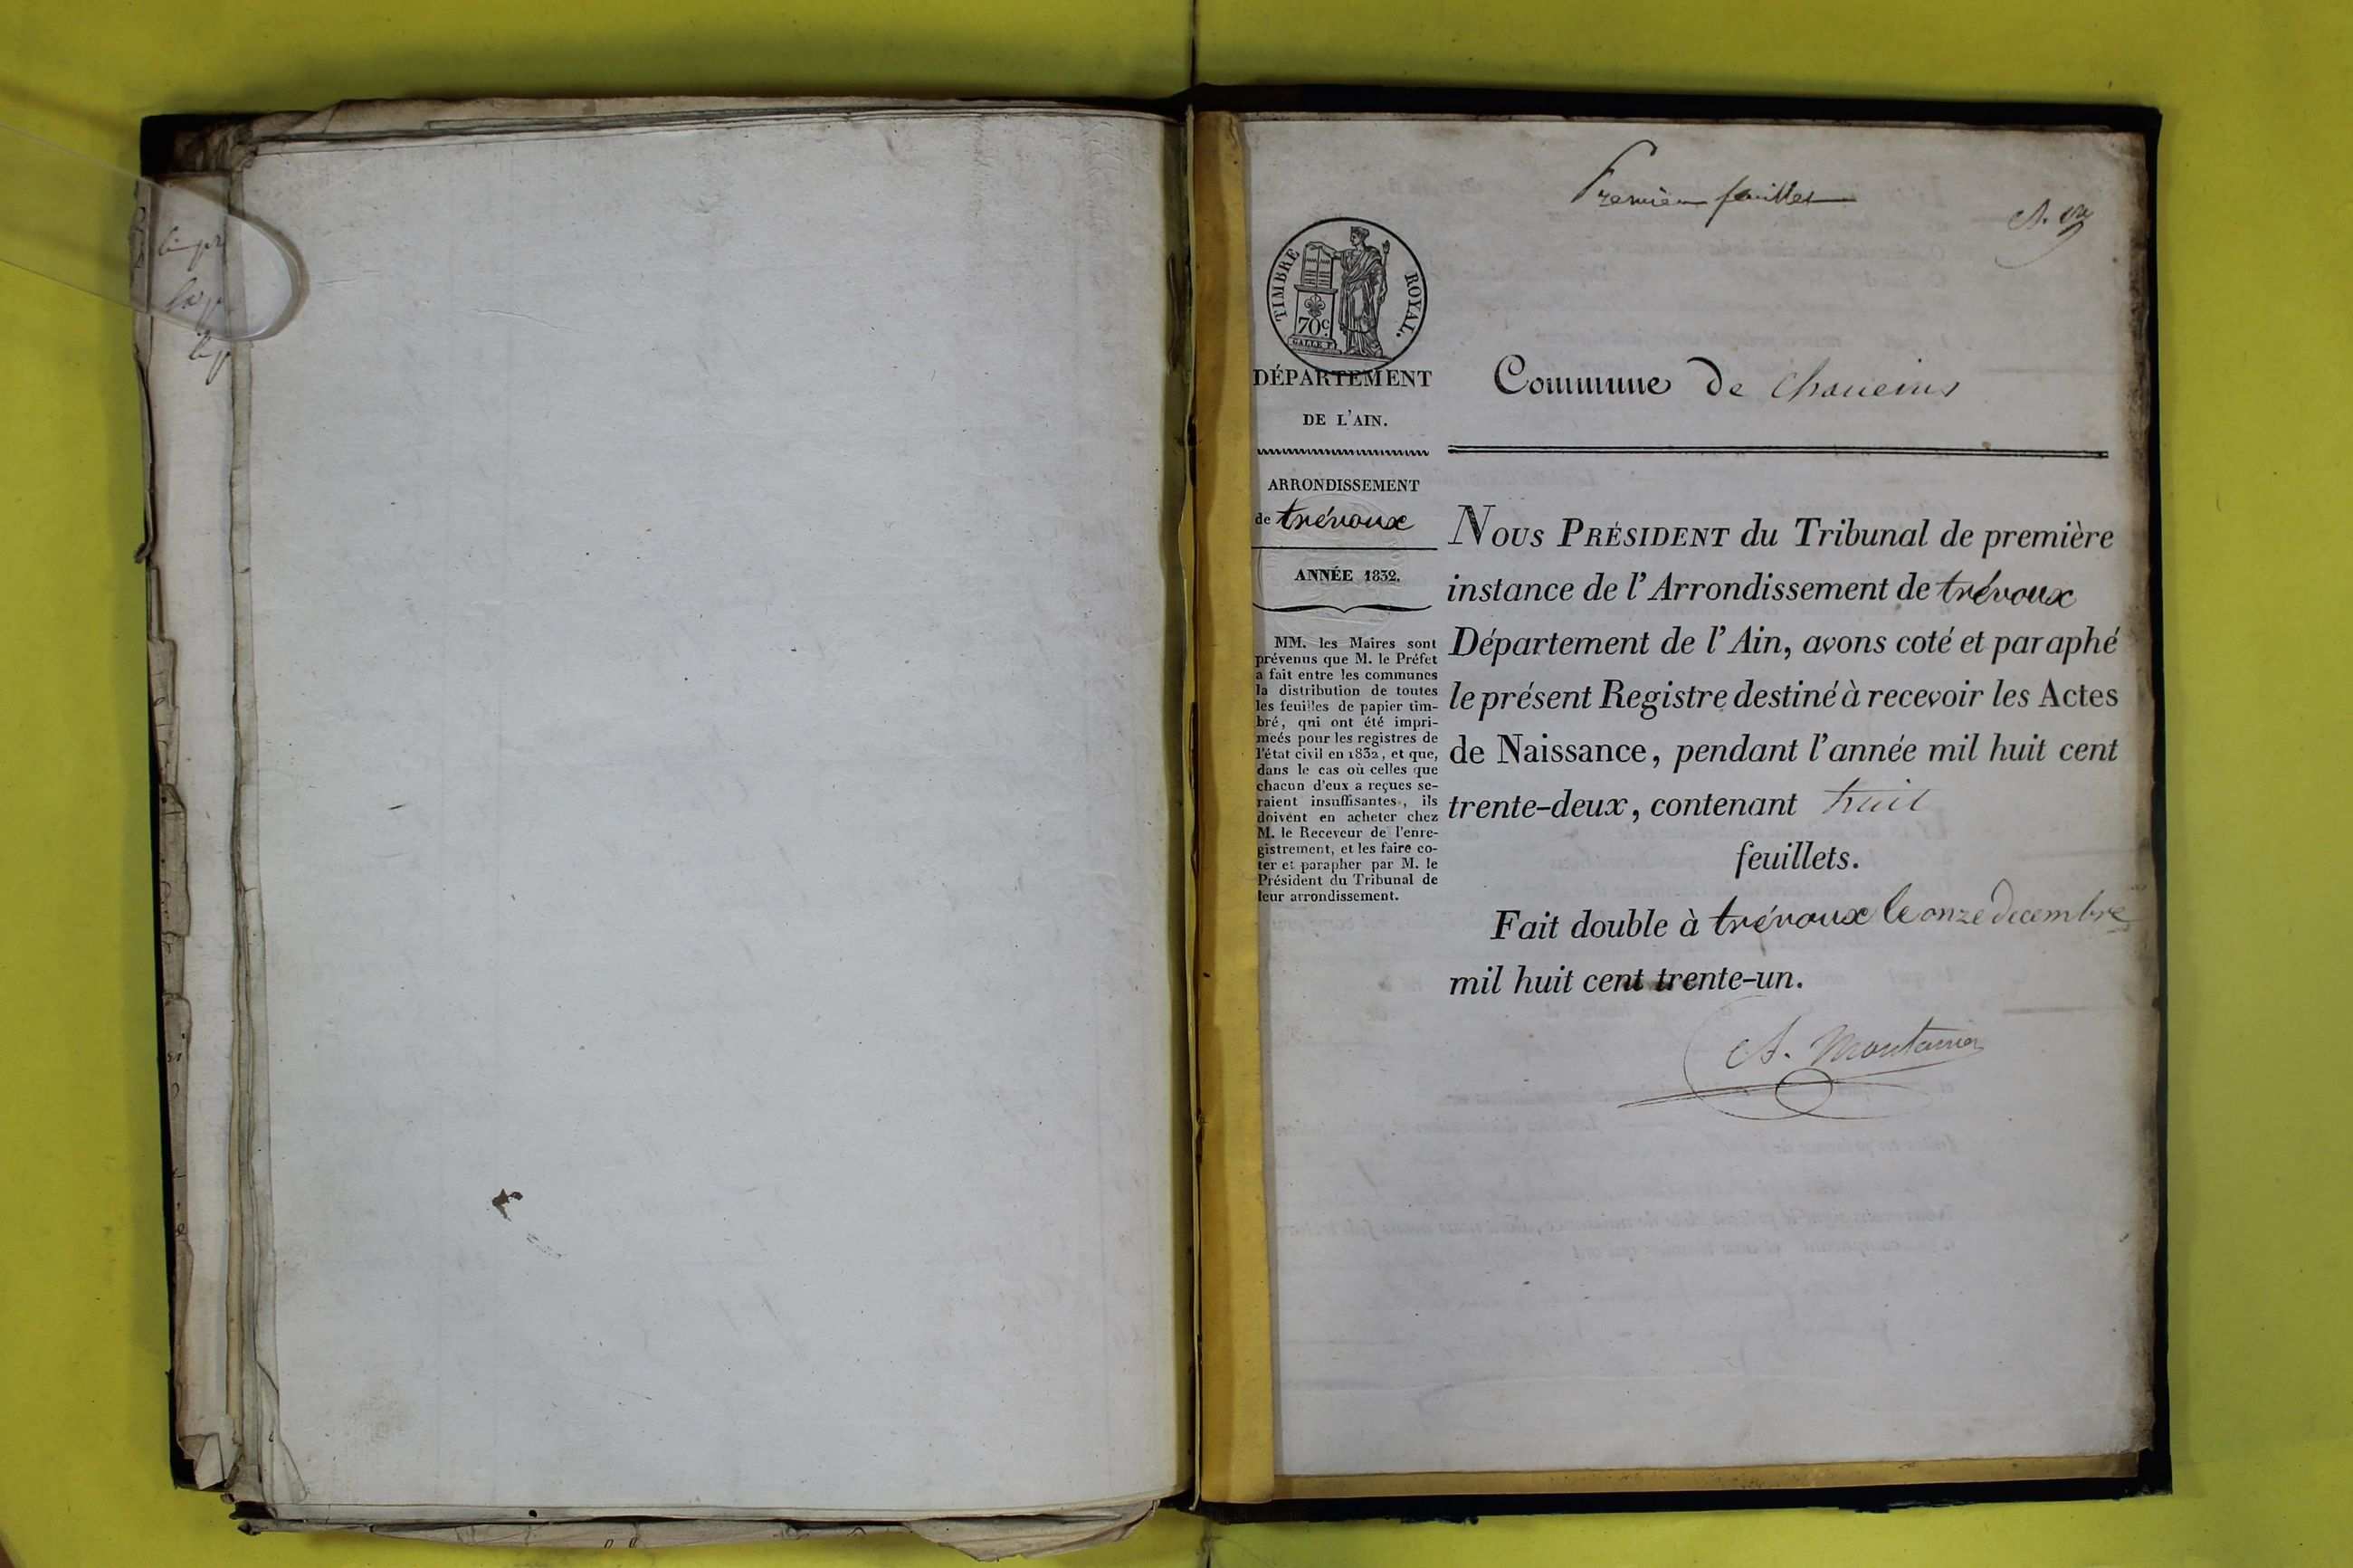 Premier feuillet
TIMBRE ROYAL.
70c.
GALLE F.
DÉPARTEMENT
DE L'AIN.
ARRONDISSEMENT
de trévoux
ANNÉE 1832.
MM. les Maires sont
prévenus que M. le Préfet
a fait entre les communes
la distribution de toutes
les feuilles de papier tim-
bré, qui ont été impri-
meés pour les registres de
l'état civil en 1832, et que,
dans le cas où celles que
chacun d'eux a reçues se-
raient insuffisantes, ils
doivent en acheter chez
M. le Receveur de l'enre-
gistrement, et les faire co-
ter et parapher par M. le
Président du Tribunal de
leur arrondissement.
Commune de Chaneins
NOUS PRÉSIDENT du Tribunal de première
instance de l'Arrondissement de trévoux
Département de l'Ain, avons coté et paraphé
le présent Registre destiné à recevoir les Actes
de Naissance, pendant l'année mil huit cent
trente-deux, contenant huit
feuillets.
Fait double à trévoux le onze decembre
mil huit cent trente-un.